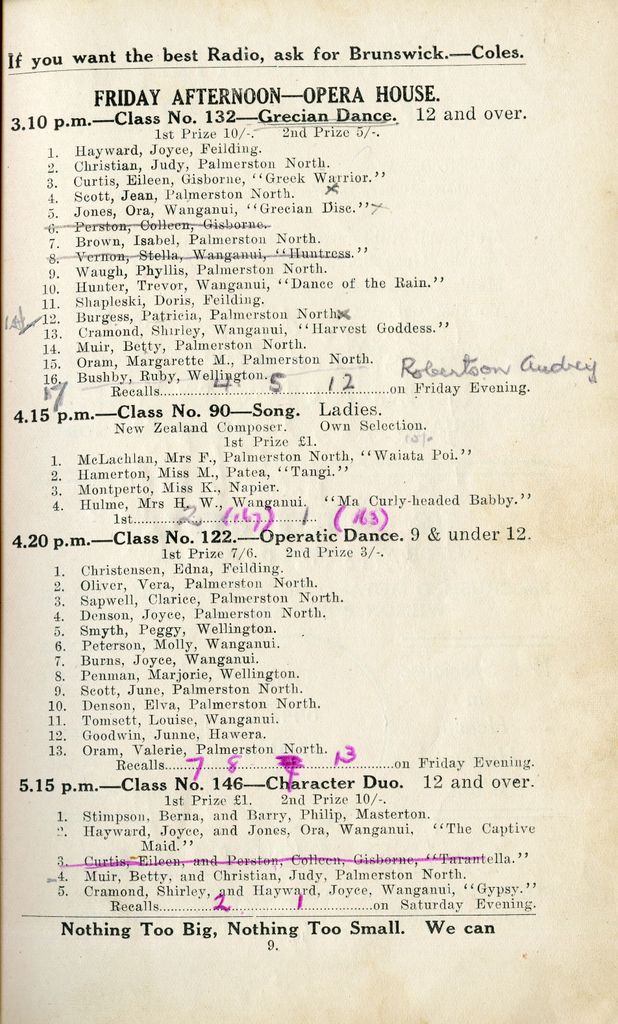 If you want the best Radio, ask for Brunswick.—Coles.
FRIDAY AFTERNOON—OPERA HOUSE.
3.10 p.m.—Class No. 132—Grecian Dance. 12 and over.
1st Prize 10/-. 2nd Prize 5/-.
1. Hayward, Joyce, Feilding.
2. Christian, Judy, Palmerston North.
3. Curtis, Eileen, Gisborne, "Greek Warrior."
4. Scott, Jean, Palmerston North. x
5. Jones, Ora, Wanganui, "Grecian Disc." x
6. Perston, Colleen, Gisborne.
7. Brown, Isabel, Palmerston North.
8. Vernon, Stella, Wanganui, "Huntress."
9. Waugh, Phyllis, Palmerston North.
10. Hunter, Trevor, Wanganui, "Dance of the Rain."
11. Shapleski, Doris, Feilding.
12. Burgess, Patricia, Palmerston North. x
13. Cramond, Shirley, Wanganui, "Harvest Goddess."
14. Muir, Betty, Palmerston North.
15. Oram, Margarette M., Palmerston North.
16. Bushby, Ruby, Wellington.
17 Robertson Audrey
Recalls 4 5 12 on Friday Evening.
4.15 p.m.—Class No. 90—Song. Ladies.
New Zealand Composer. Own Selection.
1st Prize £1.
1. McLachlan, Mrs F., Palmerston North, "Waiata Poi."
2. Hamerton, Miss M., Patea, "Tangi."
3. Montperto, Miss K., Napier.
4. Hulme, Mrs H. W., Wanganui, "Ma Curly-headed Babby."
1st 2 (167) 1 (163)
4.20 p.m.—Class No. 122.—Operatic Dance. 9 & under 12.
1st Prize 7/6. 2nd Prize 3/-.
1. Christensen, Edna, Feilding.
2. Oliver, Vera, Palmerston North.
3. Sapwell, Clarice, Palmerston North.
4. Denson, Joyce, Palmerston North.
5. Smyth, Peggy, Wellington.
6. Peterson, Molly, Wanganui.
7. Burns, Joyce, Wanganui.
8. Penman, Marjorie, Wellington.
9. Scott, June, Palmerston North.
10. Denson, Elva, Palmerston North.
11. Tomsett, Louise, Wanganui.
12. Goodwin, Junne, Hawera.
13. Oram, Valerie, Palmerston North.
Recalls 7 8 13 on Friday Evening.
5.15 p.m.—Class No. 146—Character Duo. 12 and over.
1st Prize £1. 2nd Prize 10/-.
1. Stimpson, Berna, and Barry, Philip, Masterton.
2. Hayward, Joyce, and Jones, Ora, Wanganui, "The Captive
Maid."
3. Curtis, Eileen, and Perston, Colleen, Gisborne, "Tarantella."
4. Muir, Betty, and Christian, Judy, Palmerston North.
5. Cramond, Shirley, and Hayward, Joyce, Wanganui, "Gypsy."
Recalls 2 1 on Saturday Evening.
Nothing Too Big, Nothing Too Small. We can
9.